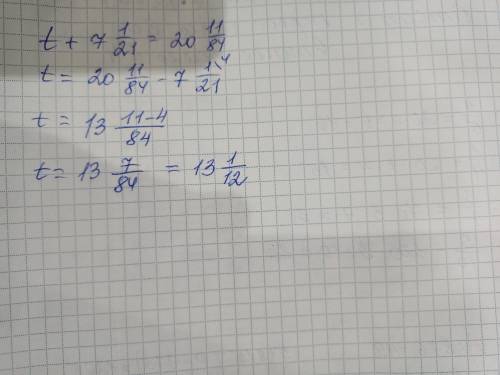 t + 7 1/21 = 20 11/84
t = 20 11/84 - 7 1\4/21
t = 13 11-4/84
t = 13 7/84 = 13 1/12